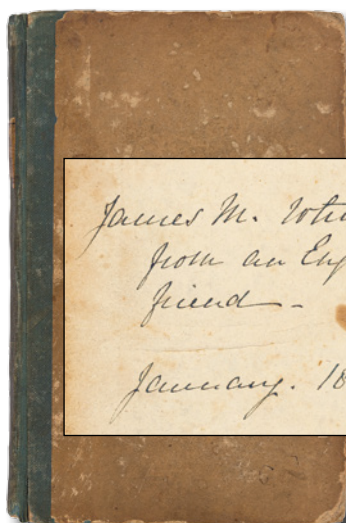 James M.
from an Eng
friend –
January. 18